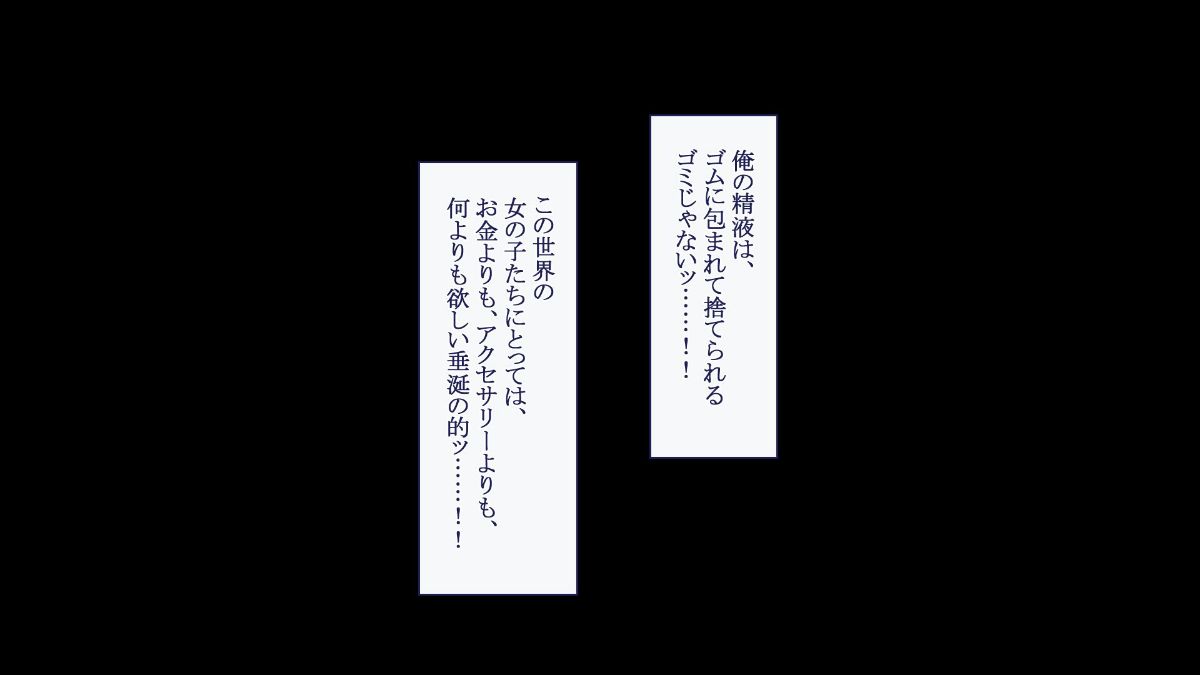 俺の精液は、
ゴムに包まれて捨てられる
ゴミじゃないッ……！！
この世界の
女の子たちにとっては、
お金よりも、アクセサリーよりも、
何よりも欲しい垂涎の的ッ……！！